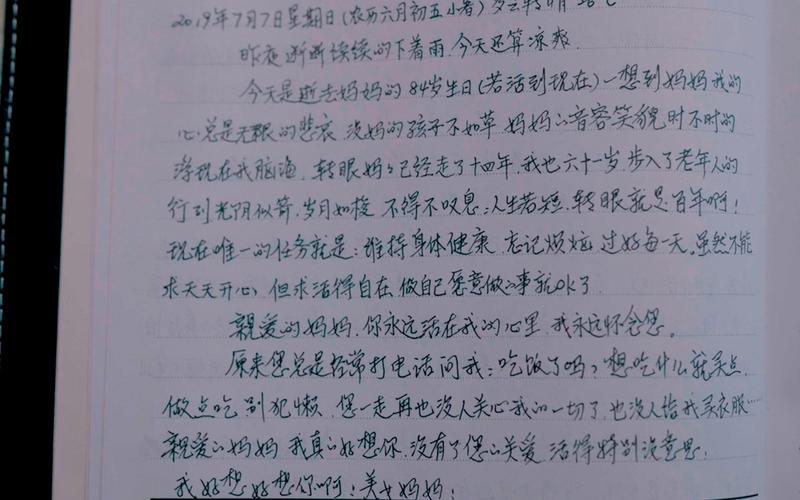 2019年7月7日星期日(农历六月初五小暑)多云转晴 28℃
昨夜断断续续的下着雨,今天还算凉爽.
今天是逝去妈妈的84岁生日(若活到现在)一想到妈妈我的
心总是无限的悲哀,没妈的孩子不如草,妈妈的音容笑貌时不时的
浮现在我脑海,转眼妈妈已经走了十四年,我也六十一岁,步入了老年人的
行列光阴似箭,岁月如梭,不得不叹息:人生苦短,转眼就是百年啊!
现在唯一的任务就是:维持身体健康,忘记烦恼,过好每一天,虽然不能
求天天开心,但求活得自在,做自己愿意做的事就OK了.
親爱的妈妈,你永远活在我的心里,我永远怀念您.
原来您总是经常打电话问我:吃饭了吗?想吃什么就买点,
做点吃,别犯懒,您一走再也没人关心我的一切了,也没人给我买衣服……
親爱的妈妈,我真的好想你,没有了您的关爱,活得特别没意思!
我好想好想你啊!美女妈妈!